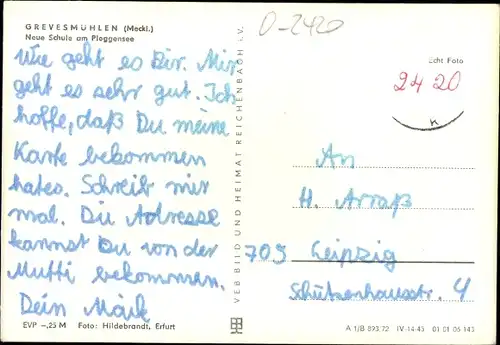 GREVESMÜHLEN (Meckl.)
Neue Schule am Ploggensee
Wie geht es Dir. Mir
geht es sehr gut. Ich
hoffe, daß Du meine
Karte bekommen
hates. Schreib mir
mal. Die Adresse
kannst Du von der
Mutti bekommen.
Dein Maik
EVP –,25 M Foto: Hildebrandt, Erfurt
VEB BILD UND HEIMAT REICHENBACH i. V.
0-2420
Echt Foto
2420
An
H. Arraß
705 Leipzig
Schützenhausstr. 4
A 1/B 893/72 IV-14-45 01 01 05 143